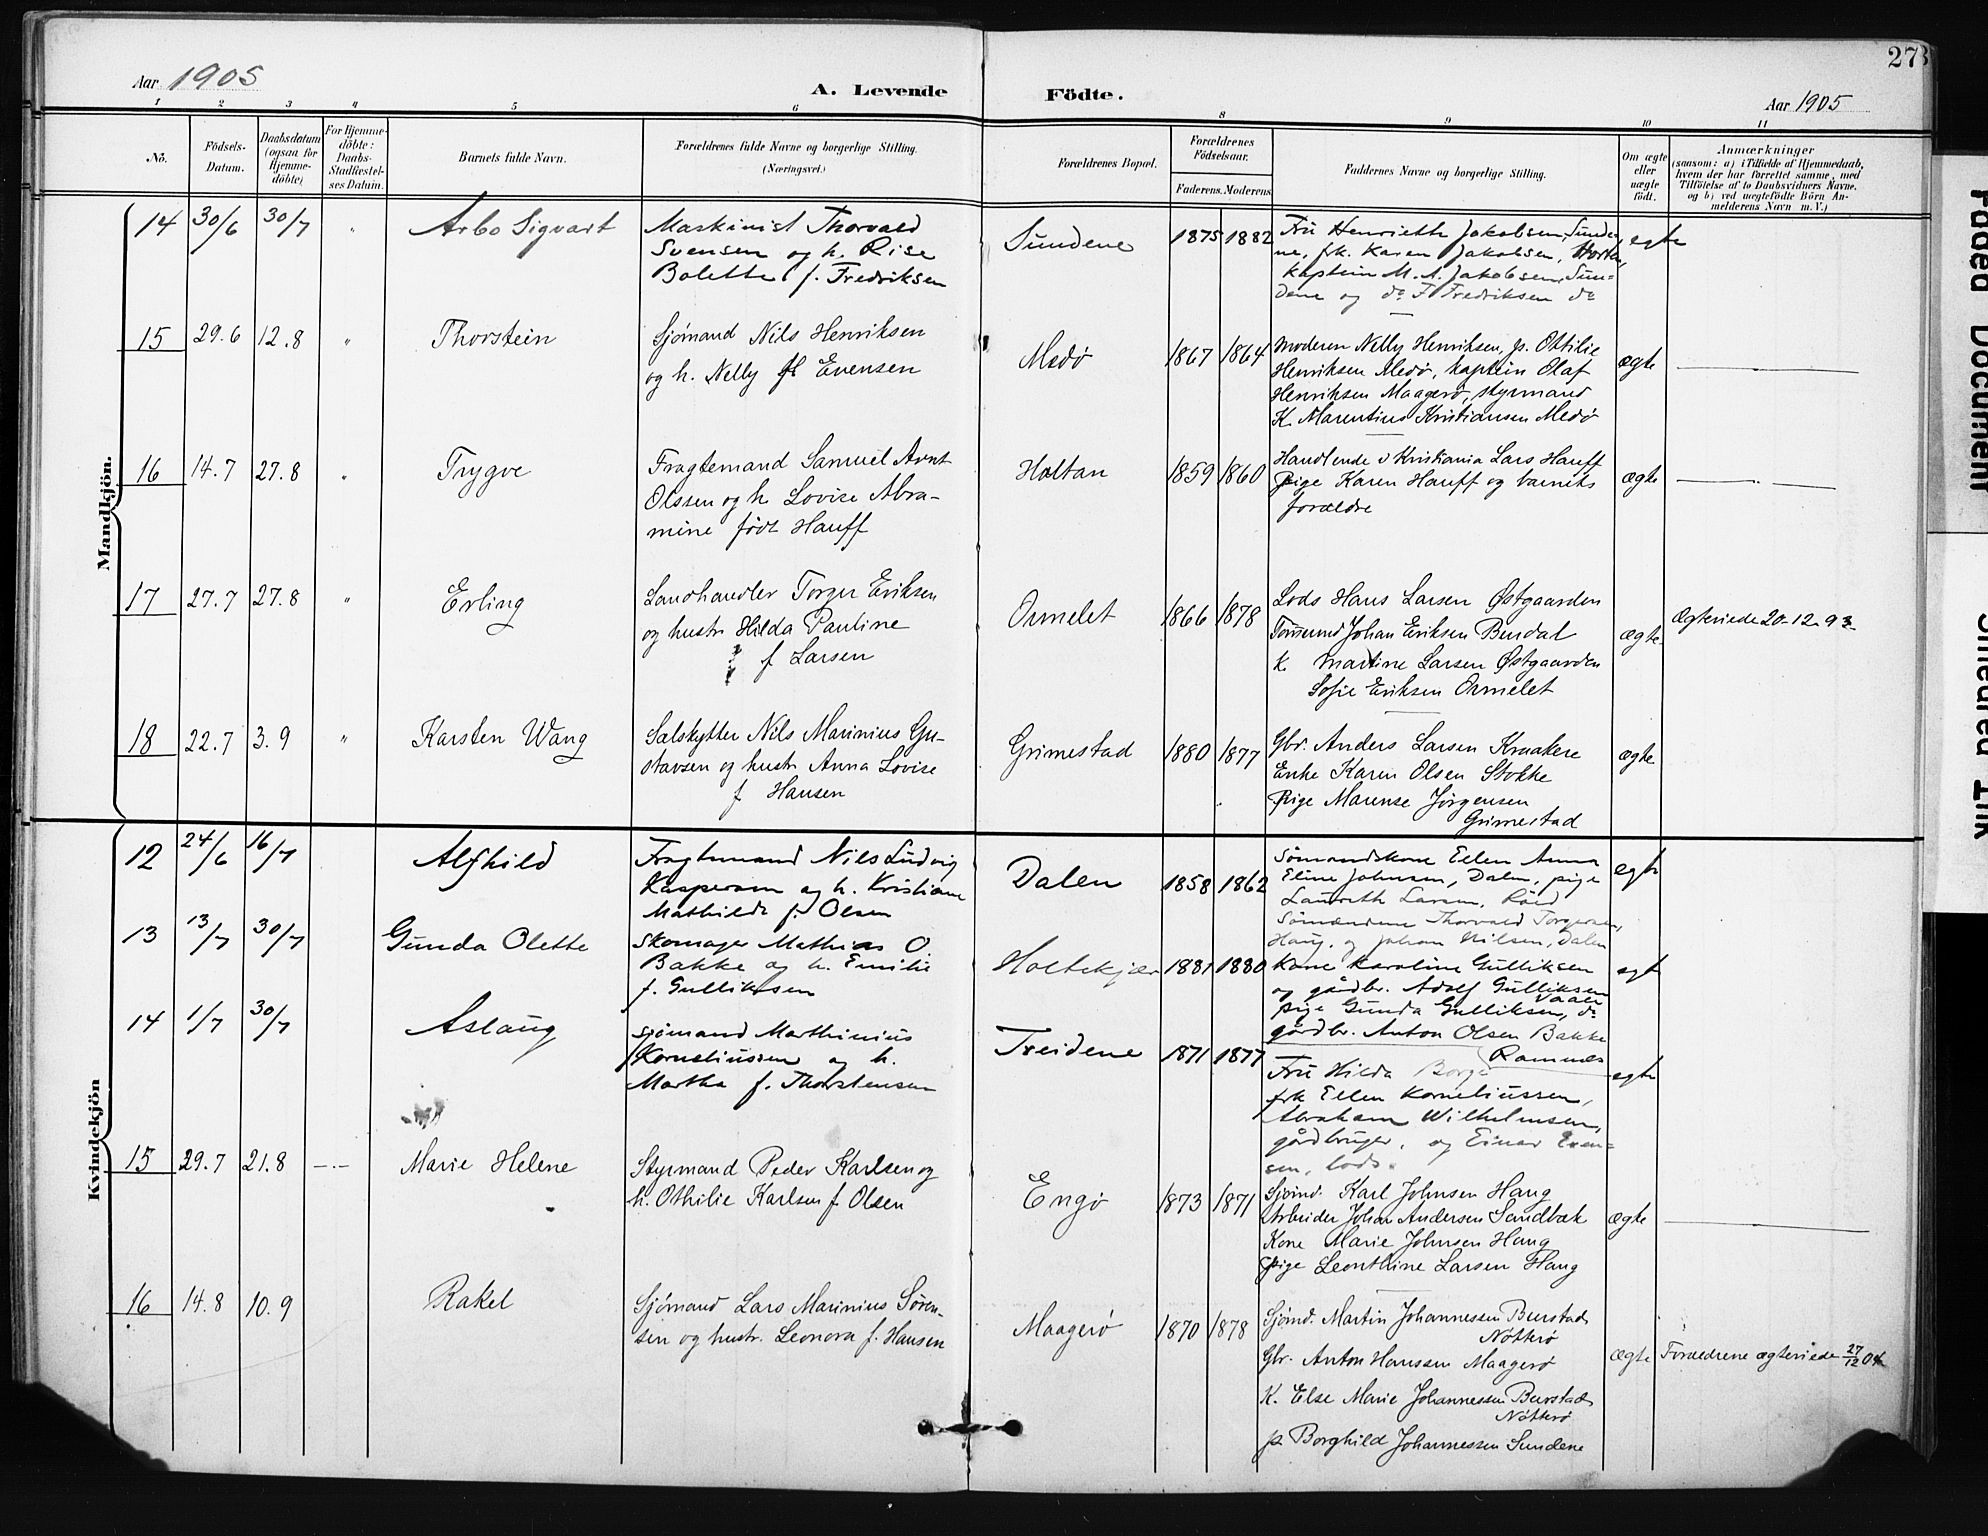 273
Aar 1905
A. Levende Födte.
Aar 1905
1 2 3 4 5 6 8 9 10 11
No.
Födsels-Datum.
Daabsdatum (ogsaa for Hjemme-döbte)
For Hjemme-döbte: Daabs-Stadfæstel-ses Datum.
Barnets fulde Navn.
Forældrenes fulde Navne og borgerlige Stilling.
(Næringsvei.)
Forældrenes Bopæl.
Forældrenes Födselsaar.
Faderens. Moderens.
Faddernes Navne og borgerlige Stilling.
Om ægte eller uægte født.
Anmærkninger
(saasom: a) i Tilfælde af Hjemmedaab,
hvem der har forrettet samme, med
Tilföielse af to Daabsvidners Navne.
og b) ved uægtefödte Börn An-
melderens Navn m. V.)
Mandkjön.
14 30/6 30/7 " Arbo Sigvart
Maskinist Thorvald
Svensen og h. Rise
Bolette f. Fredriksen
Sundene 1875 1882
Fru Henriette Jakobsen, Sunde-
ne, frk. Karen Jakobsen, Horten,
Kaptein M. A. Jakobsen, Sun=
dene og do F. Fredriksen do
egte
15 29.6 12.8 " Thorstein
Sjømand Nils Henriksen
og h. Nelly f. Evensen
Medø 1867 1864
Moderen Nelly Henriksen, p. Ottilie
Henriksen Medø, kaptein Olaf
Henriksen Maagerø, styrmand
K. Marentius Kristiansen Medø
ægte
16 14.7 27.8 " Trygve
Fragtemand Samuel Arnt
Olssen og h Lovise Abra-
mine født Hauff
Holtan 1859 1860
Handlende i Kristiania Lars Hauff
Pige Karen Hauff og barnets
forældre
ægte
17 27.7 27.8 " Erling
Landhandler Torger Eriksen
og hustr Hilda Pauline
f Larsen
Ormelet 1866 1878
Lods Hans Larsen Østgaarden
Tømmermd Johan Eriksen Bendal
K. Martine Larsen Østgaarden
Sofie Eriksen Ormelet
ægte
Ægteviede 20-12-93
18 22.7 3.9 " Karsten Wang
Sælskytter Nils Marinius Gu-
stavsen og hustr Anna Lovise
f Hansen
Grimestad 1880 1877
Gbr. Anders Larsen Kraakere
Enke Karen Olsen Stokke
Pige Marense Jørgensen
Grimestad
ægte
Kvindekjön
12 24/6 16/7 Alfhild
Fragtemand Nils Ludvig
Kaspersen og h. Kristiane
Mathilde f. Olsen
Dalen 1858 1862
Sømandskone Ellen Anna
Eline Johnsen, Dalen, pige
Laureth Larsen, Röed
Sømændene Thorvald Torgersen,
Haug, og Johan Nilsen, Dalen
egte
13 13/7 30/7 Gunda Olette
Skomager Mathias O.
Bakke og h. Emilie
f. Gulliksen
Holtekjær 1881 1880
Kone Karoline Gulliksen
og gårdbr. Adolf Gulliksen
Vaale
pige Gunda Gulliksen, do
gårdbr. Anton Olsen Bakke
Ramnæs
egte
14 1/7 30/7 Aslaug
Sjømand Marthinius
Korneliussen og h.
Martha f. Thorstensen
Treidene 1871 1877
Fru Hilda Borge
frk Ellen Korneliussen,
Abraham Wilhelmsen,
gårdbruger, og Einar Even=
sen, lods.
egte
15 29.7 21.8 —.— Marie Helene
Styrmand Peder Karlsen og
h. Othilie Karlsen f. Olsen
Engø 1873 1871
Sjømd. Karl Johnsen Haug
Arbeider Johan Andersen Sandbæk
Kone Marie Johnsen Haug
Pige Leonthine Larsen Haug
ægte
16 14.8 10.9 Rakel
Sjømand Lars Marinius Søren-
sen og hustr. Leonora f. Hansen
Maagerø 1870 1878
Sjømd. Martin Johannessen Burstad
Nøtterø
Gbr. Anton Hanssen Maagerø
K. Else Marie Johannessen Burstad
Nøtterø
p. Borghild Johannessen Sundene
ægte
Forældrene ægteviede 27/12 04
Faded Document
Smeared Ink